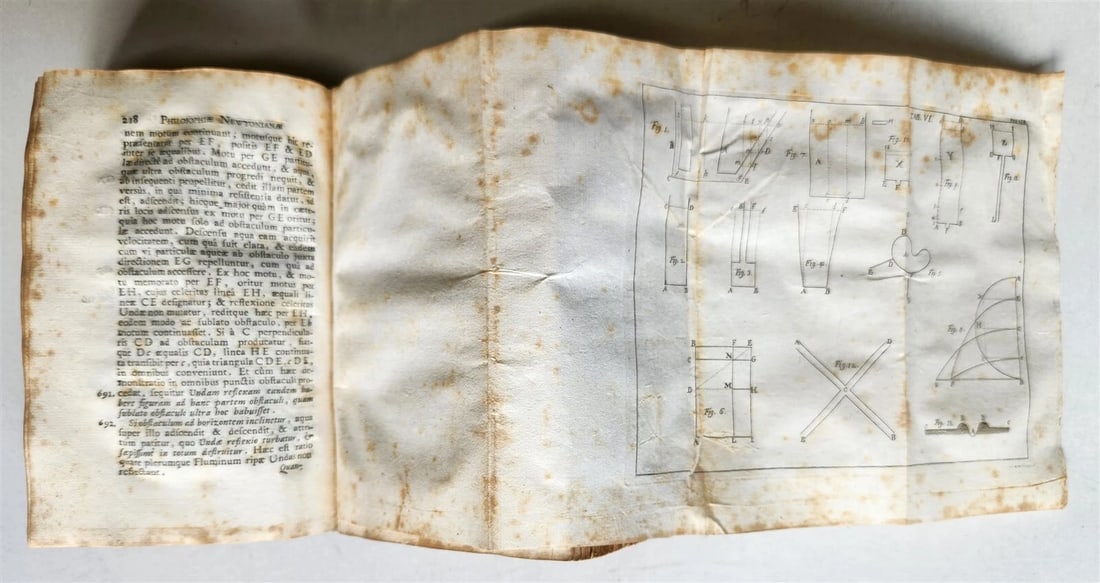 218 PHILOSOPHIÆ NEWTONIANÆ
nem motum continuant; motusque hic re-
præsentatur per EF, positis EF & ED
inter se æqualibus. Motu per GE particu-
læ directè ad obstaculum accedunt, & aqua,
quæ ultra obstaculum progredi nequit, &
ab insequenti propellitur, cedit illam partem
versus, in qua minima resistentia datur, id
est, adscendit; hicque major quàm in cæte-
ris locis adscensus ex motu per GE oritur;
quia hoc motu solo ad obstaculum particu-
læ accedunt. Descensu aqua eam acquirit
velocitatem, cum quâ fuit elata, & eadem
cum vi particulæ aqueæ ab obstaculo juxta
directionem EG repelluntur, cum quâ ad
obstaculum accessere. Ex hoc motu, & mo-
tu memorato per EF, oritur motus per
EH, cujus celeritas lineâ EH, æquali li-
neæ CE designatur; & reflexione celeritas
Undæ non mutatur, reditque hæc per EH,
eodem modo ac sublato obstaculo, per Eh
motum continuasset. Si à C perpendicula-
ris CD ad obstaculum producatur, fiat-
que De æqualis CD, linea HE continua-
ta transibit per c, quia triangula CDE, cDE,
in omnibus conveniunt. Et cùm hæc de-
monstratio in omnibus punctis obstaculi pro-
691. cedat, sequitur Undam reflexam eandem ha-
bere figuram ad hanc partem obstaculi, quam
sublato obstaculo ultra hoc habuisset.
692. Si obstaculum ad horizontem inclinetur, aqua
super illo adscendit & descendit, & attri-
tum patitur, quo Undæ reflexio turbatur, &
sæpissimè in totum destruitur. Hæc est ratio
quare plerumque Fluminum ripæ Undas non
reflectant.
Quan-
TAB. VI.
Fig. 1.
B
A
Fig. 7.
X
Y
Z
Fig. 2.
A B
Fig. 3.
A B
E F
Fig. 4.
A B
B
D
E
Fig. 5.
B F E
C N G
D M H
Fig. 6.
L
A D
Fig. 10.
C
E B
F